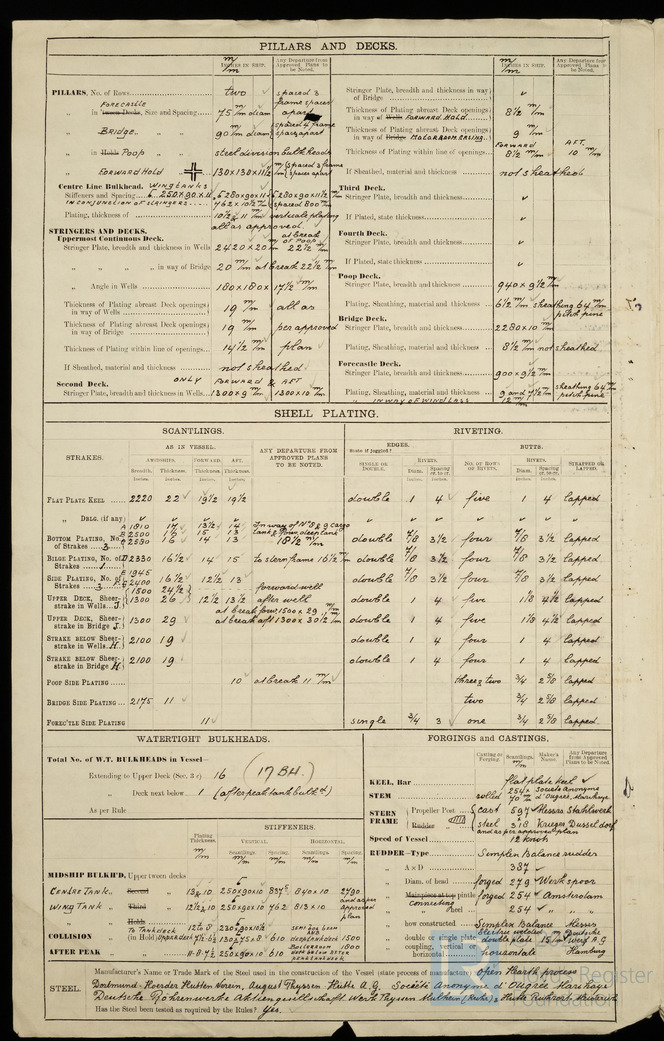 PILLARS AND DECKS.
m/m INCHES IN SHIP. Any Departure from Approved Plans to be Noted.
PILLARS, No. of Rows two spaced 3
Forecastle
„ in Tween Decks, Size and Spacing 75 m/m diam frame spaces apart
„ Bridge „ 90 m/m diam spaced 4 frame spaces apart
„ in Holds Poop „ steel division bulkheads
„ FORWARD HOLD „ 130 x 130 x 11½ m/m spaced 3 frame spaces apart
Centre Line Bulkhead. WING TANKS
Stiffeners and Spacing 250 x 90 x 11 280x90x11½ 280x90x11½
IN CONJUNCTION OF STRINGERS 762 x 10½ m/m spaced 800 m/m
Plating, thickness of 10½ & 11 m/m vertical plating
all as approved.
STRINGERS AND DECKS.
Uppermost Continuous Deck.
at break of Poop
Stringer Plate, breadth and thickness in Wells 2420 x 20 m/m 22½ m/m
„ „ „ „ in way of Bridge 20 m/m at break 22½ m/m
„ Angle in Wells 180 x 180 x 17½ m/m
Thickness of Plating abreast Deck openings in way of Wells 19 m/m all as
Thickness of Plating abreast Deck openings in way of Bridge 19 m/m per approved
Thickness of Plating within line of openings 14½ m/m plan
If Sheathed, material and thickness not sheathed.
Second Deck. ONLY FORWARD & AFT
Stringer Plate, breadth and thickness in Wells 1300 x 9 m/m 1300 x 10 m/m
m/m INCHES IN SHIP. Any Departure from Approved Plans to be Noted.
Stringer Plate, breadth and thickness in way of Bridge
Thickness of Plating abreast Deck openings in way of Wells FORWARD HOLD. 8½ m/m
Thickness of Plating abreast Deck openings in way of Bridge MOTORROOM CASING. 9 m/m
FORWARD AFT.
Thickness of Plating within line of openings 8½ m/m 10 m/m
If Sheathed, material and thickness not sheathed
Third Deck.
Stringer Plate, breadth and thickness
If Plated, state thickness
Fourth Deck.
Stringer Plate, breadth and thickness
If Plated, state thickness
Poop Deck.
Stringer Plate, breadth and thickness 940 x 9½ m/m
Plating, Sheathing, material and thickness 6½ m/m sheathing 64 m/m pitch pine
Bridge Deck.
Stringer Plate, breadth and thickness 2280 x 10 m/m
Plating, Sheathing, material and thickness 8½ m/m not sheathed
Forecastle Deck.
Stringer Plate, breadth and thickness 900 x 9½ m/m
Plating, Sheathing, material and thickness 9 and 7½ m/m sheathing 64 m/m pitch pine
IN WAY OF WINDLASS 12 m/m
SHELL PLATING.
SCANTLINGS. RIVETING.
STRAKES. AS IN VESSEL. ANY DEPARTURE FROM APPROVED PLANS TO BE NOTED. EDGES. BUTTS.
AMIDSHIPS. FORWARD. AFT. State if joggled? RIVETS. No. OF ROWS OF RIVETS. RIVETS. STRAPPED OR LAPPED.
Breadth. Thickness. Thickness. Thickness. SINGLE OR DOUBLE. Diam. Spacing cr. to cr. Diam. Spacing cr. to cr.
FLAT PLATE KEEL 2220 22 19½ 19½ double 1 4 five 1 4 lapped
„ DBLG. (if any)
BOTTOM PLATING, No. of Strakes 3 A 1810 17 13½ 14 In way of N° 8 & 9 cargo
B 2500 15 13 tank & four deep tank
C 2590 14 13 18½ m/m double 7/8 3½ four 7/8 3½ lapped
BILGE PLATING, No. of Strakes 1 D 2330 16½ 14 15 to sternframe 16½ m/m double 7/8 3½ four 7/8 3½ lapped
SIDE PLATING, No. of Strakes E 1945 16½ 12½ 13 double 7/8 3½ four 7/8 3½ lapped
2400
1500 24½ forward well
UPPER DECK, Sheerstrake in Wells J. 1300 26 12½ 13½ after well double 1 4 five 1⅛ 4½ lapped
at break forw 1500 x 29 m/m
UPPER DECK, Sheerstrake in Bridge J. 1300 29 at break aft 1300 x 30½ m/m double 1 4 five 1⅛ 4½ lapped
STRAKE BELOW Sheerstrake in Wells H. 2100 19 double 1 4 four 1 4 lapped
STRAKE BELOW Sheerstrake in Bridge H. 2100 19 double 1 4 four 1 4 lapped
POOP SIDE PLATING 10 at break 11 m/m three & two ¾ 2⅝ lapped
BRIDGE SIDE PLATING 2175 11 two ¾ 2⅝ lapped
FOREC'TLE SIDE PLATING 11 single ¾ 3 one ¾ 2⅝ lapped
WATERTIGHT BULKHEADS.
Total No. of W.T. BULKHEADS in Vessel—
Extending to Upper Deck (Sec. 3 c) 16 (17 BH.)
„ Deck next below 1 (after peak tank bulkd)
As per Rule
STIFFENERS.
Plating Thickness. VERTICAL. HORIZONTAL.
Scantlings. Spacing. Scantlings. Spacing.
m/m m/m m/m m/m m/m
MIDSHIP BULKH'D, Upper tween decks
CENTRE TANK „ Second „ 13 & 10 250x90x10 837.5 840x10 2790
WING TANK „ Third „ 12½ & 10 250x90x10 762 813x10 and as per approved plan
„ Holds „
COLLISION „ (in Hold) 610 1500
AFTER PEAK „ „ 250x90x10 610 1800
FORGINGS AND CASTINGS.
Casting or Forging. Scantlings. m/m Maker's Name. Any Departure from Approved Plans to be Noted.
KEEL, Bar flat plate keel
STEM rolled 254 x 70 m/m Societe Anonyme d'Ougrée, Marihaye
STERN FRAME Propeller Post cast 597 Messrs Stahlwerk
Rudder „ steel 318 Krieger Dusseldorf
and as per approved plan
Speed of Vessel 12 knots
RUDDER—Type Simplex Balance rudder
„ A x D 387
„ Diam. of head forged 279 Werkspoor
„ Mainpiece at top pintle forged 254 Amsterdam
Connecting „ heel 254 „
„ how constructed Simplex Balance Messrs
electric welded Deutsche
„ double or single plate double plate 15 m/m Werft A.G.
„ coupling, vertical or horizontal horizontal Hamburg
STEEL. Manufacturer's Name or Trade Mark of the Steel used in the construction of the Vessel (state process of manufacture) Open Hearth process
Dortmund-Hoerder Hutten Verein, August Thyssen Hutte A.G. Société Anonyme d'Ougrée Marihaye
Deutsche Röhrenwerke Aktiengesellschaft Werk Thyssen Mulheim (Ruhr)
Has the Steel been tested as required by the Rules? Yes.
Register
Foundation